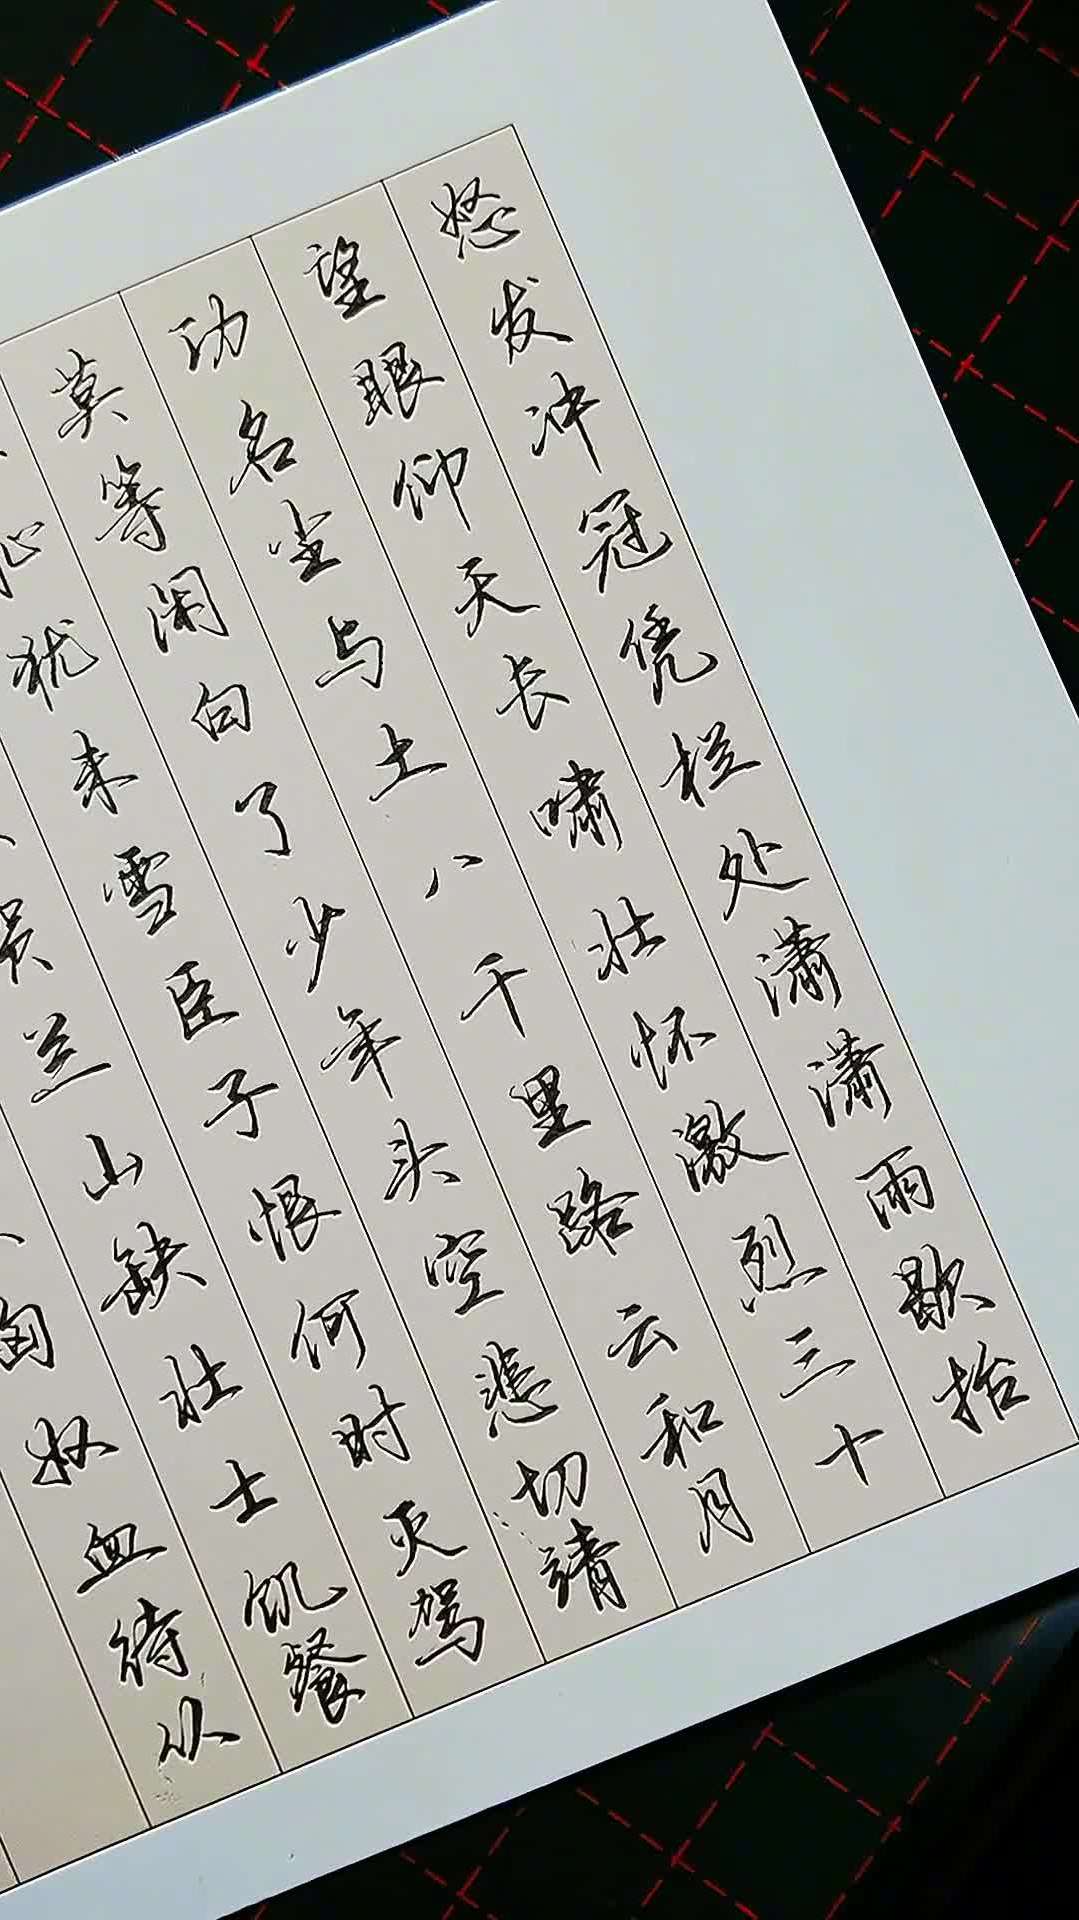 怒发冲冠凭栏处潇潇雨歇抬
望眼仰天长啸壮怀激烈三十
功名尘与土八千里路云和月
莫等闲白了少年头空悲切靖
耻犹未雪臣子恨何时灭驾
贺兰山缺壮士饥餐
匈奴血待从